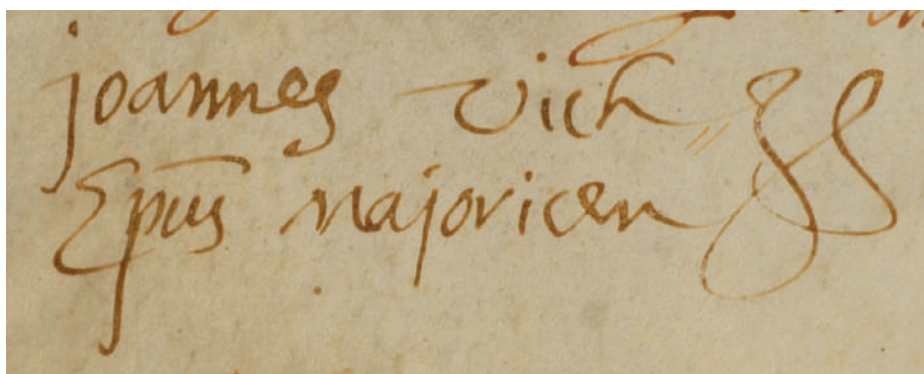 joannes vich
Epūs majoricen